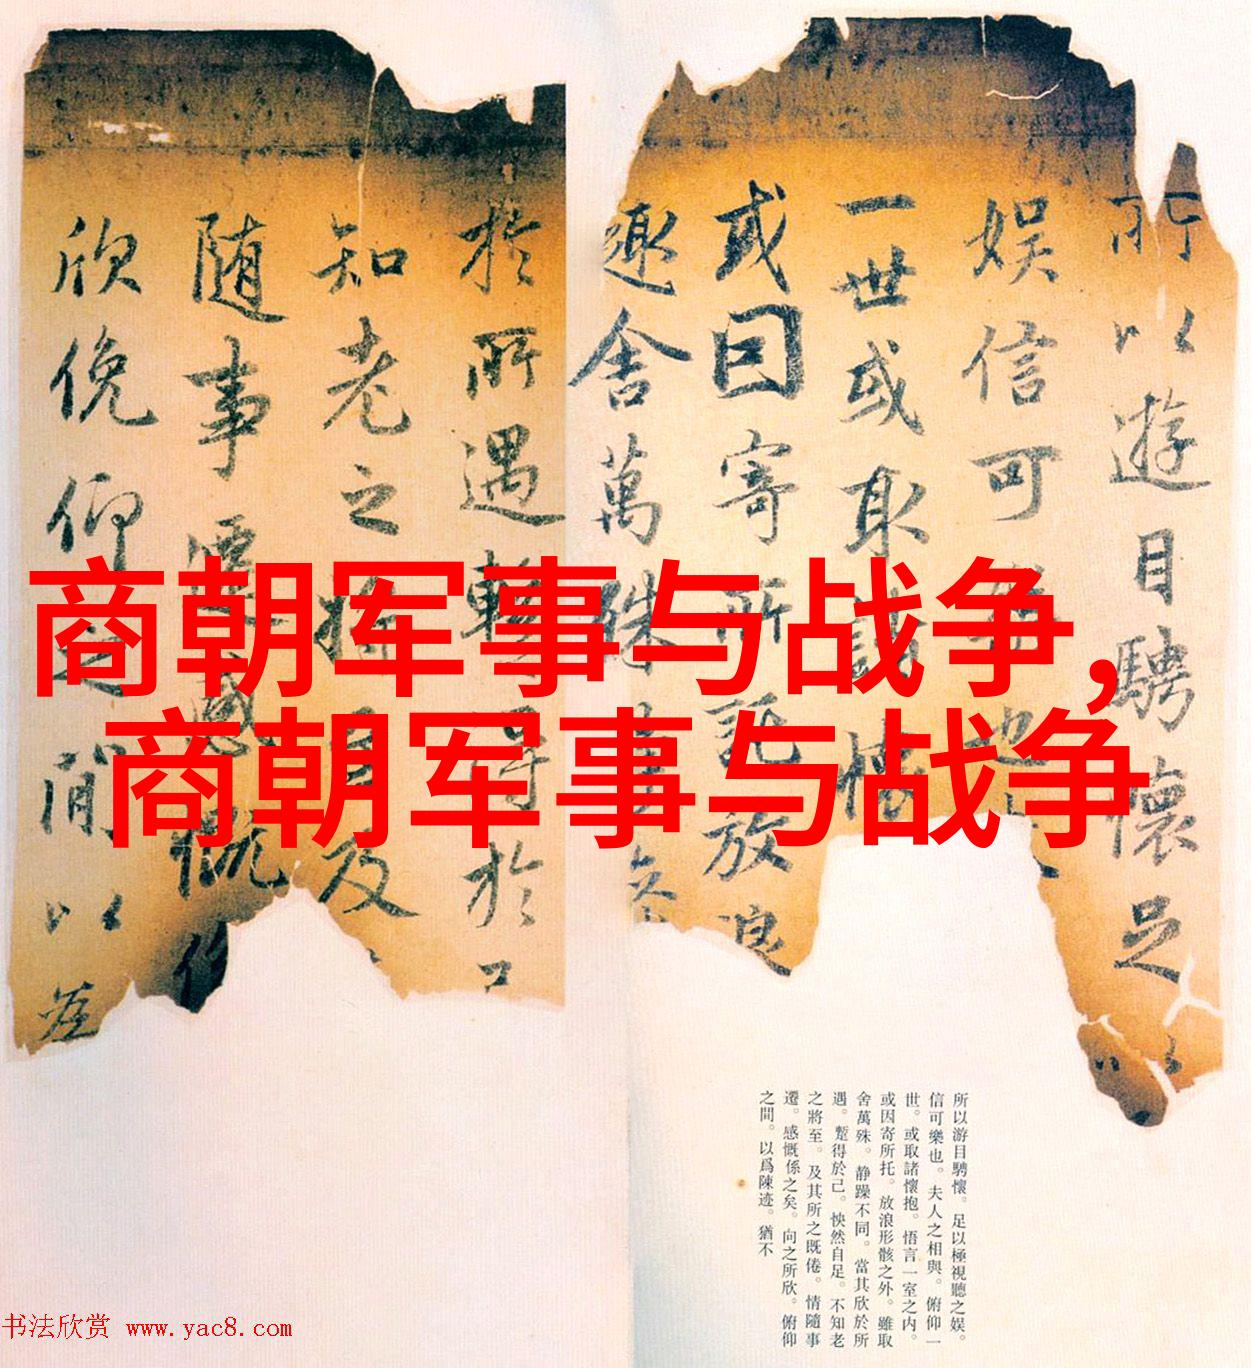 所以遊目騁懷足以
娛信可樂也
一世或取諸懷
或因寄所託放浪
趣舍萬殊靜
於所遇暫得於己
知老之將至及
隨事遷感慨係
欣俛仰之閒以為
商朝军事与战争,
商朝军事与战争
所以游目騁懷。足以極視聽之娛。
信可樂也。夫人之相與。俯仰一
世。或取諸懷抱。悟言一室之内。
或因寄所托。放浪形骸之外。雖取
舍萬殊。静躁不同。當其欣於所
遇。蹔得於己。怏然自足。不知老
之將至。及其所之既倦。情隨事
遷。感慨係之矣。向之所欣。俯仰
之間。以爲陳迹。猶不
书法欣赏 www.yac8.com